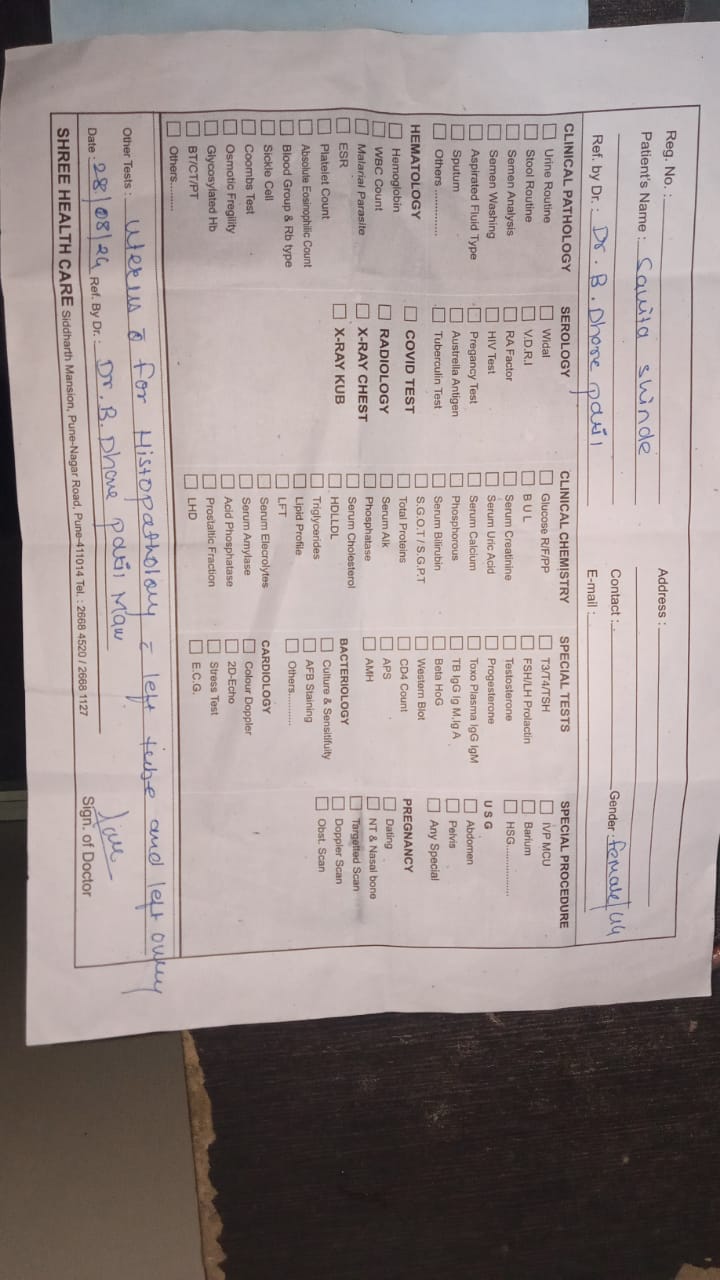 Reg. No. :
Patient's Name : Savita shinde
Address :
Contact :
Gender : female/44
Ref. by Dr. : Dr. B. Dhone patil
E-mail :
CLINICAL PATHOLOGY
Urine Routine
Stool Routine
Semen Analysis
Semen Washing
Aspirated Fluid Type
Sputum
Others ..............
HEMATOLOGY
Hemoglobin
WBC Count
Malarial Parasite
ESR
Platelet Count
Absolute Eosinophilic Count
Blood Group & Rb type
Sickle Cell
Coombs Test
Osmotic Fregility
Glycosylated Hb
BT/CT/PT
Others.........
SEROLOGY
Widal
V.D.R.I
RA Factor
HIV Test
Pregancy Test
Austrella Antigen
Tuberculin Test
COVID TEST
RADIOLOGY
X-RAY CHEST
X-RAY KUB
CLINICAL CHEMISTRY
Glucose R/F/PP
B U L
Serum Creatinine
Serum Uric Acid
Serum Calcium
Phosphorous
Serum Bilirubin
S.G.O.T / S.G.P.T
Total Proteins
Serum Alk
Phosphatase
Serum Cholesterol
HDLLDL
Triglycerides
Lipid Profile
LFT
Serum Elecrolytes
Serum Amylase
Acid Phosphatase
Prostaltic Fraction
LHD
SPECIAL TESTS
T3/T4/TSH
FSH/LH Prolactin
Testosterone
Progesterone
Toxo Plasma IgG IgM
TB IgG Ig M.Ig A
Beta HoG
Western Blot
CD4 Count
APS
AMH
BACTERIOLOGY
Culture & Sensitifuity
AFB Staining
Others...........
CARDIOLOGY
Colour Doppler
2D-Echo
Stress Test
E.C.G.
SPECIAL PROCEDURE
IVP MCU
Barium
HSG................
U S G
Abdomen
Pelvis
Any Special
PREGNANCY
Dating
NT & Nasal bone
Targetted Scan
Doppler Scan
Obst. Scan
Other Tests : uterus c̄ for Histopatholony c̄ left tube and left overy
Date : 28/08/24 Ref. By Dr. : Dr. B. Dhone patil Mam
Sign. of Doctor
SHREE HEALTH CARE Siddharth Mansion, Pune-Nagar Road, Pune-411014 Tel. : 2668 4520 / 2668 1127